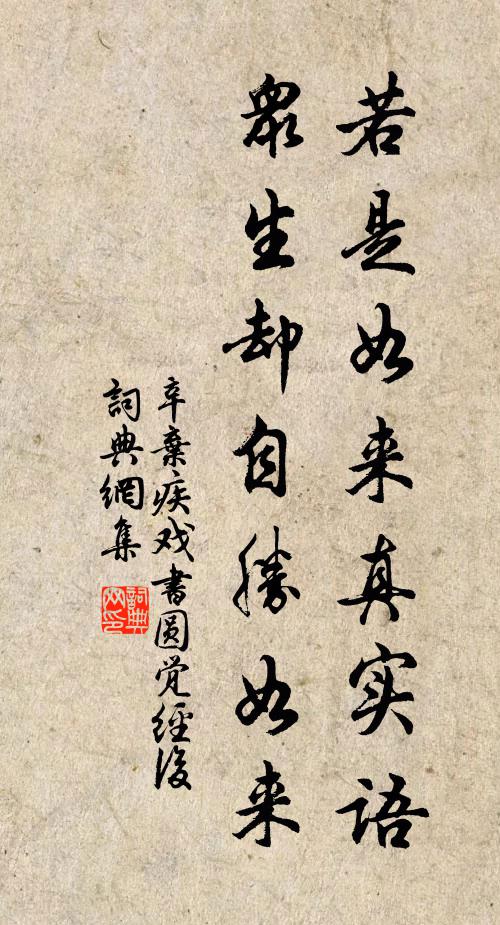 若是如来真实语
衆生却自勝如来
辛棄疾戏書圆觉經後
詞典網集
詞典网印